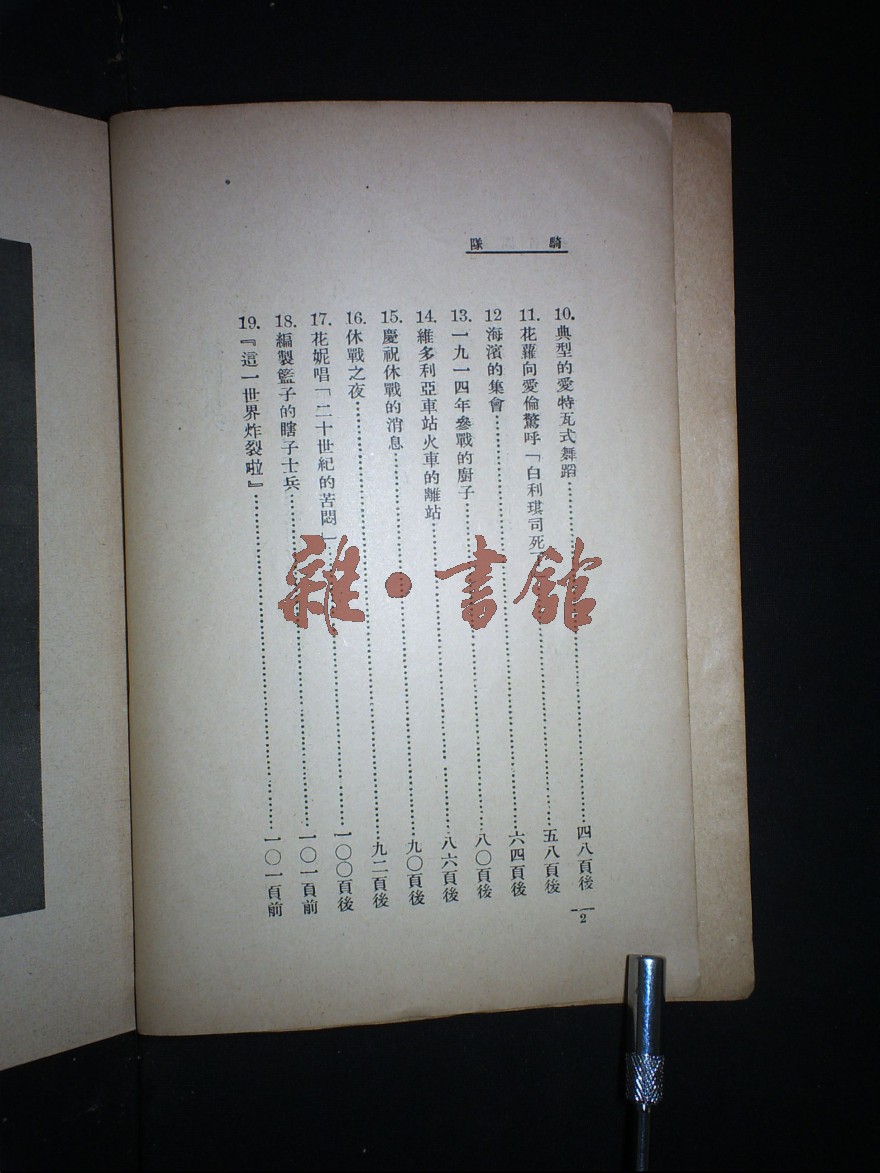 騎 隊
10. 典型的愛特瓦式舞蹈……四八頁後
11. 花蘿向愛倫驚呼「白利琪司死……五八頁後
12 海濱的集會……六四頁後
13. 一九一四年參戰的廚子……八〇頁後
14. 維多利亞車站火車的離站……八六頁後
15. 慶祝休戰的消息……九〇頁後
16. 休戰之夜……九二頁後
17. 花妮唱「二十世紀的苦悶」……一〇〇頁後
18. 編製籃子的瞎子士兵……一〇一頁前
19. 『這一世界炸裂啦』……一〇一頁前
2
雜·書館